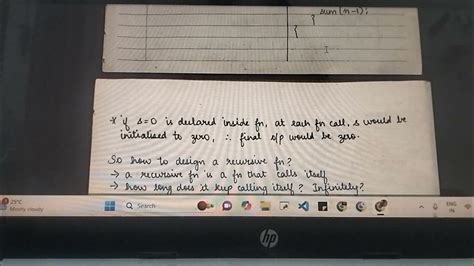 sum(n-1);
}
}
* if s=0 is declared inside fn, at each fn call, s would be
initialised to zero, ∴ final o/p would be zero.
So how to design a recursive fn?
→ a recursive fn is a fn that calls itself
→ how long does it keep calling itself? Infinitely?
25°C
Mostly cloudy
Search
ENG
IN
hp